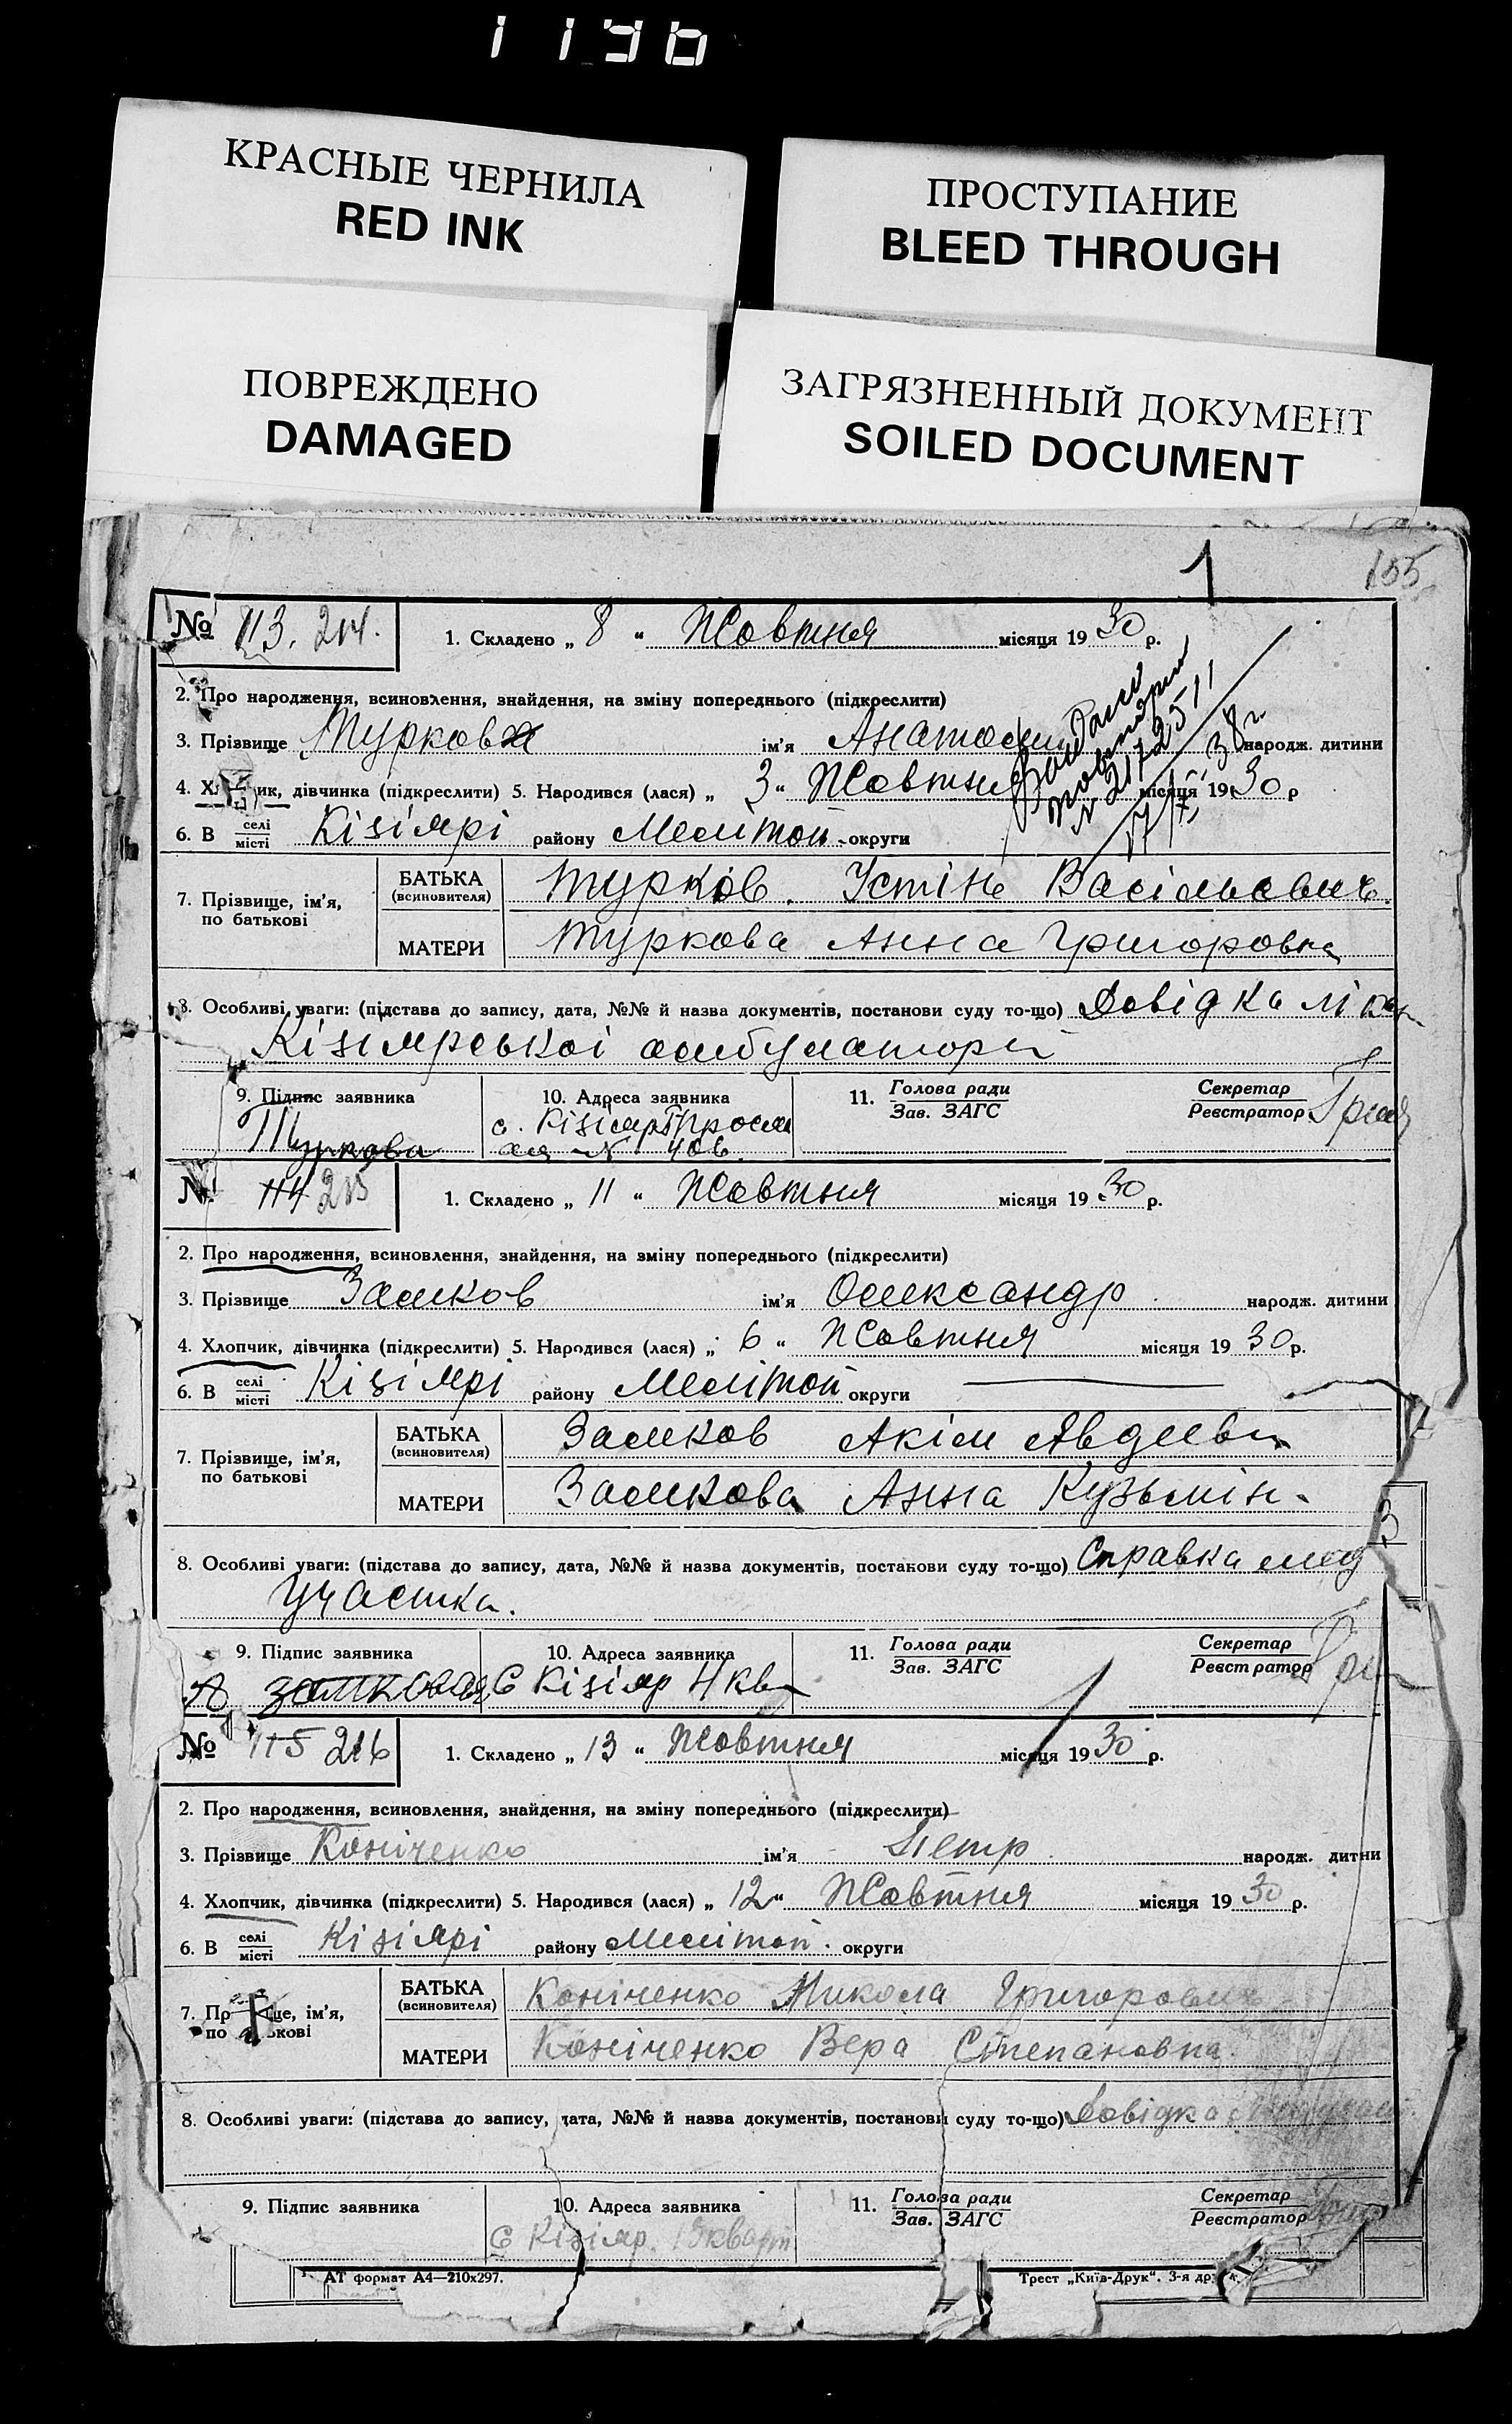 1196
КРАСНЫЕ ЧЕРНИЛА
RED INK
ПРОСТУПАНИЕ
BLEED THROUGH
ПОВРЕЖДЕНО
DAMAGED
ЗАГРЯЗНЕННЫЙ ДОКУМЕНТ
SOILED DOCUMENT
1 155
№ 113. 214. 1. Складено „ 8 “ Жовтня місяця 19 30 р.
2. Про народження, всиновлення, знайдення, на зміну попереднього (підкреслити)
3. Прізвище Турков ім'я народж. дитини
4. дівчинка (підкреслити) 5. Народився (лася) „ 3 “ Жовтня місяця 19 30 р
6. В селі місті Кізіярі району Мелітоп. округи
7. Прізвище, ім'я, по батькові
БАТЬКА (всиновителя) Турков. Устін Васільевич.
МАТЕРИ Туркова Анна Григоровна
8. Особливі уваги: (підстава до запису, дата, №№ й назва документів, постанови суду то-що) Довідка
Кізіярської амбулаторн
9. Підпис заявника 10. Адреса заявника 11. Голова ради Зав. ЗАГС Секретар Реєстратор
Туркова с. Кізіяр
№ 406.
№ 114 215 1. Складено „ 11 “ Жовтня місяця 19 30 р.
2. Про народження, всиновлення, знайдення, на зміну попереднього (підкреслити)
3. Прізвище Замков ім'я Олександр народж. дитини
4. Хлопчик, дівчинка (підкреслити) 5. Народився (лася) „ 6 “ Жовтня місяця 19 30 р.
6. В селі місті Кізіярі району Мелітоп округи
7. Прізвище, ім'я, по батькові
БАТЬКА (всиновителя) Замков Акім Авдееви
МАТЕРИ Замкова Анна Кузьмін.
8. Особливі уваги: (підстава до запису, дата, №№ й назва документів, постанови суду то-що) Справка мед
участка.
9. Підпис заявника 10. Адреса заявника 11. Голова ради Зав. ЗАГС Секретар Реєстратор
замковая С Кізіяр 4 кв
№ 115 216 1. Складено „ 13 “ Жовтня місяця 19 30 р.
2. Про народження, всиновлення, знайдення, на зміну попереднього (підкреслити)
3. Прізвище Коніченко ім'я Петр народж. дитини
4. Хлопчик, дівчинка (підкреслити) 5. Народився (лася) „ 12 “ Жовтня місяця 19 30 р.
6. В селі місті Кізіярі району Мелітоп. округи
7. ім'я, по
БАТЬКА (всиновителя) Коніченко Микола Григорович
МАТЕРИ Коніченко Вера Степановна.
8. Особливі уваги: (підстава до запису, дата, №№ й назва документів, постанови суду то-що) Довідка
9. Підпис заявника 10. Адреса заявника 11. Голова ради Зав. ЗАГС Секретар Реєстратор
С Кізіяр. кварт
АТ формат А4—210х297. Трест „Київ-Друк“. 3-я